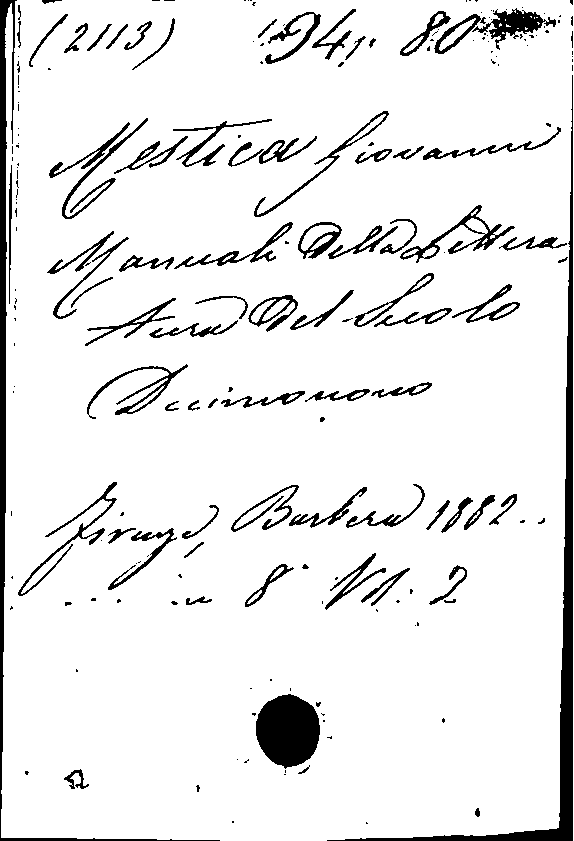 (2113) 94, 80
Mestica Giovanni
Manuali Della Lettera-
tura Del Secolo
Decimonono
Firenze, Barbera 1882..
... in 8° Vol: 2